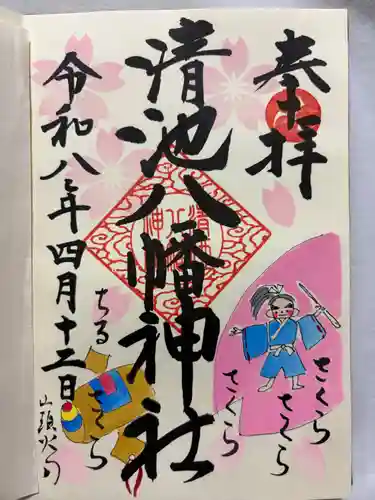 奉拝
清池八幡神社
令和八年四月十二日
さくら
さくら
さくら
ちる
さくら
山頭火の句